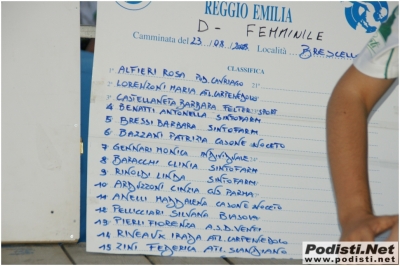 REGGIO EMILIA
D - FEMMINILE
Camminata del 23/08/2008 Località BRESCELLO
CLASSIFICA
1 ALFIERI ROSA POD. CAVRIAGO 21°
2 LORENZONI MARIA ATL. CARPENEDOLO
3 CASTELLANETA BARBARA FELTER SPORT
4 BENATTI ANTONELLA SINTOFARM
5 BRESSI BARBARA SINTOFARM
6 BAZZANI PATRIZIA CASONE NOCETO
7 GENNARI MONICA INDIVIDUALE
8 BARACCHI CLINIA SINTOFARM
9 RINOLDI LINDA SINTOFARM
10 ARDUZZONI CINZIA GS PARMA
11 ANELLI MADDALENA CASONE NOCETO
12 PELLICIARI SILVANA BIASOLA
13 PIERLI FIORENZA A.S.D. VENTI
14 RIVEAUX IRADA ATL. CARPENEDOLO
15 ZINI FEDERICA ATL. SCANDIANO
Podisti.Net
www.podisti.net